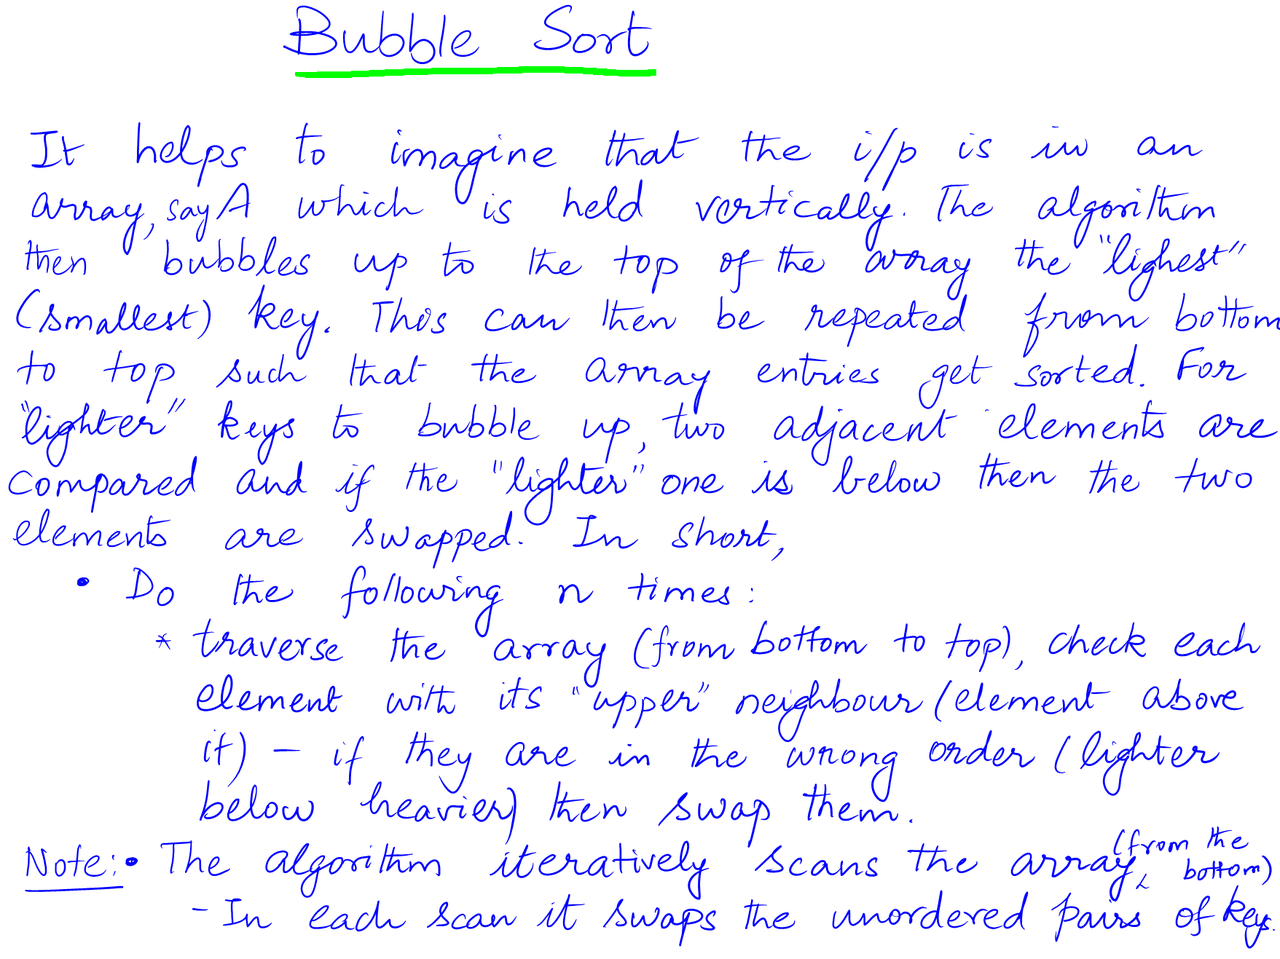 Bubble Sort
It helps to imagine that the i/p is in an
array, say A which is held vertically. The algorithm
then bubbles up to the top of the array the "lighest"
(smallest) key. This can then be repeated from bottom
to top such that the array entries get sorted. For
"lighter" keys to bubble up, two adjacent elements are
compared and if the "lighter" one is below then the two
elements are swapped. In short,
• Do the following n times:
* traverse the array (from bottom to top), check each
element with its "upper" neighbour (element above
it) – if they are in the wrong order (lighter
below heavier) then swap them.
Note: • The algorithm iteratively scans the array (from the bottom)
- In each scan it swaps the unordered pairs of keys.